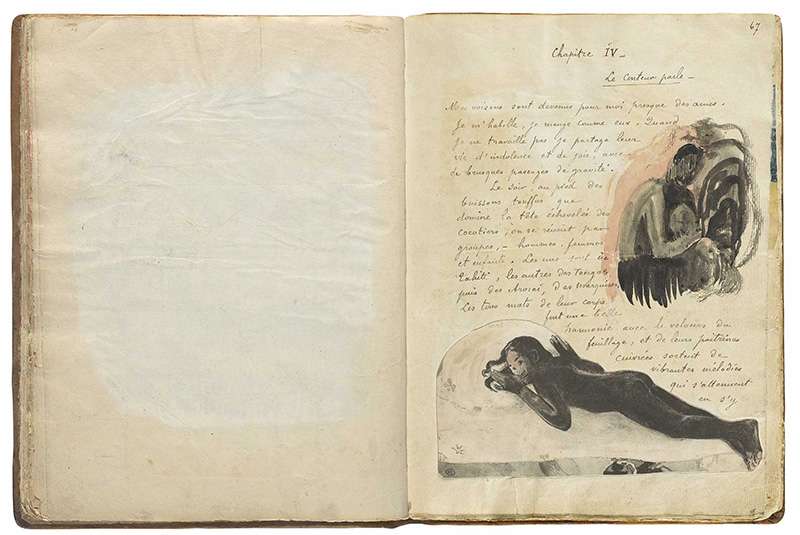 67
Chapitre IV –
Le Conteur parle –
Mes voisins sont devenus pour moi presque des amis.
Je m'habille, je mange comme eux. Quand
je ne travaille pas je partage leur
vie d'indolence et de joie, avec
de brusques passages de gravité.
Le soir, au pied des
buissons touffus que
domine la tête échevelée des
cocotiers, on se réunit par
groupes, – hommes, femmes
et enfants. Les uns sont de
Tahiti, les autres des Tongas,
puis des Arosaï, des Marquises.
Les tons mats de leur corps
font une belle
harmonie avec le velours du
feuillage, et de leurs poitrines
cuivrées sortent de
vibrantes mélodies
qui s'atténuent
en s'y